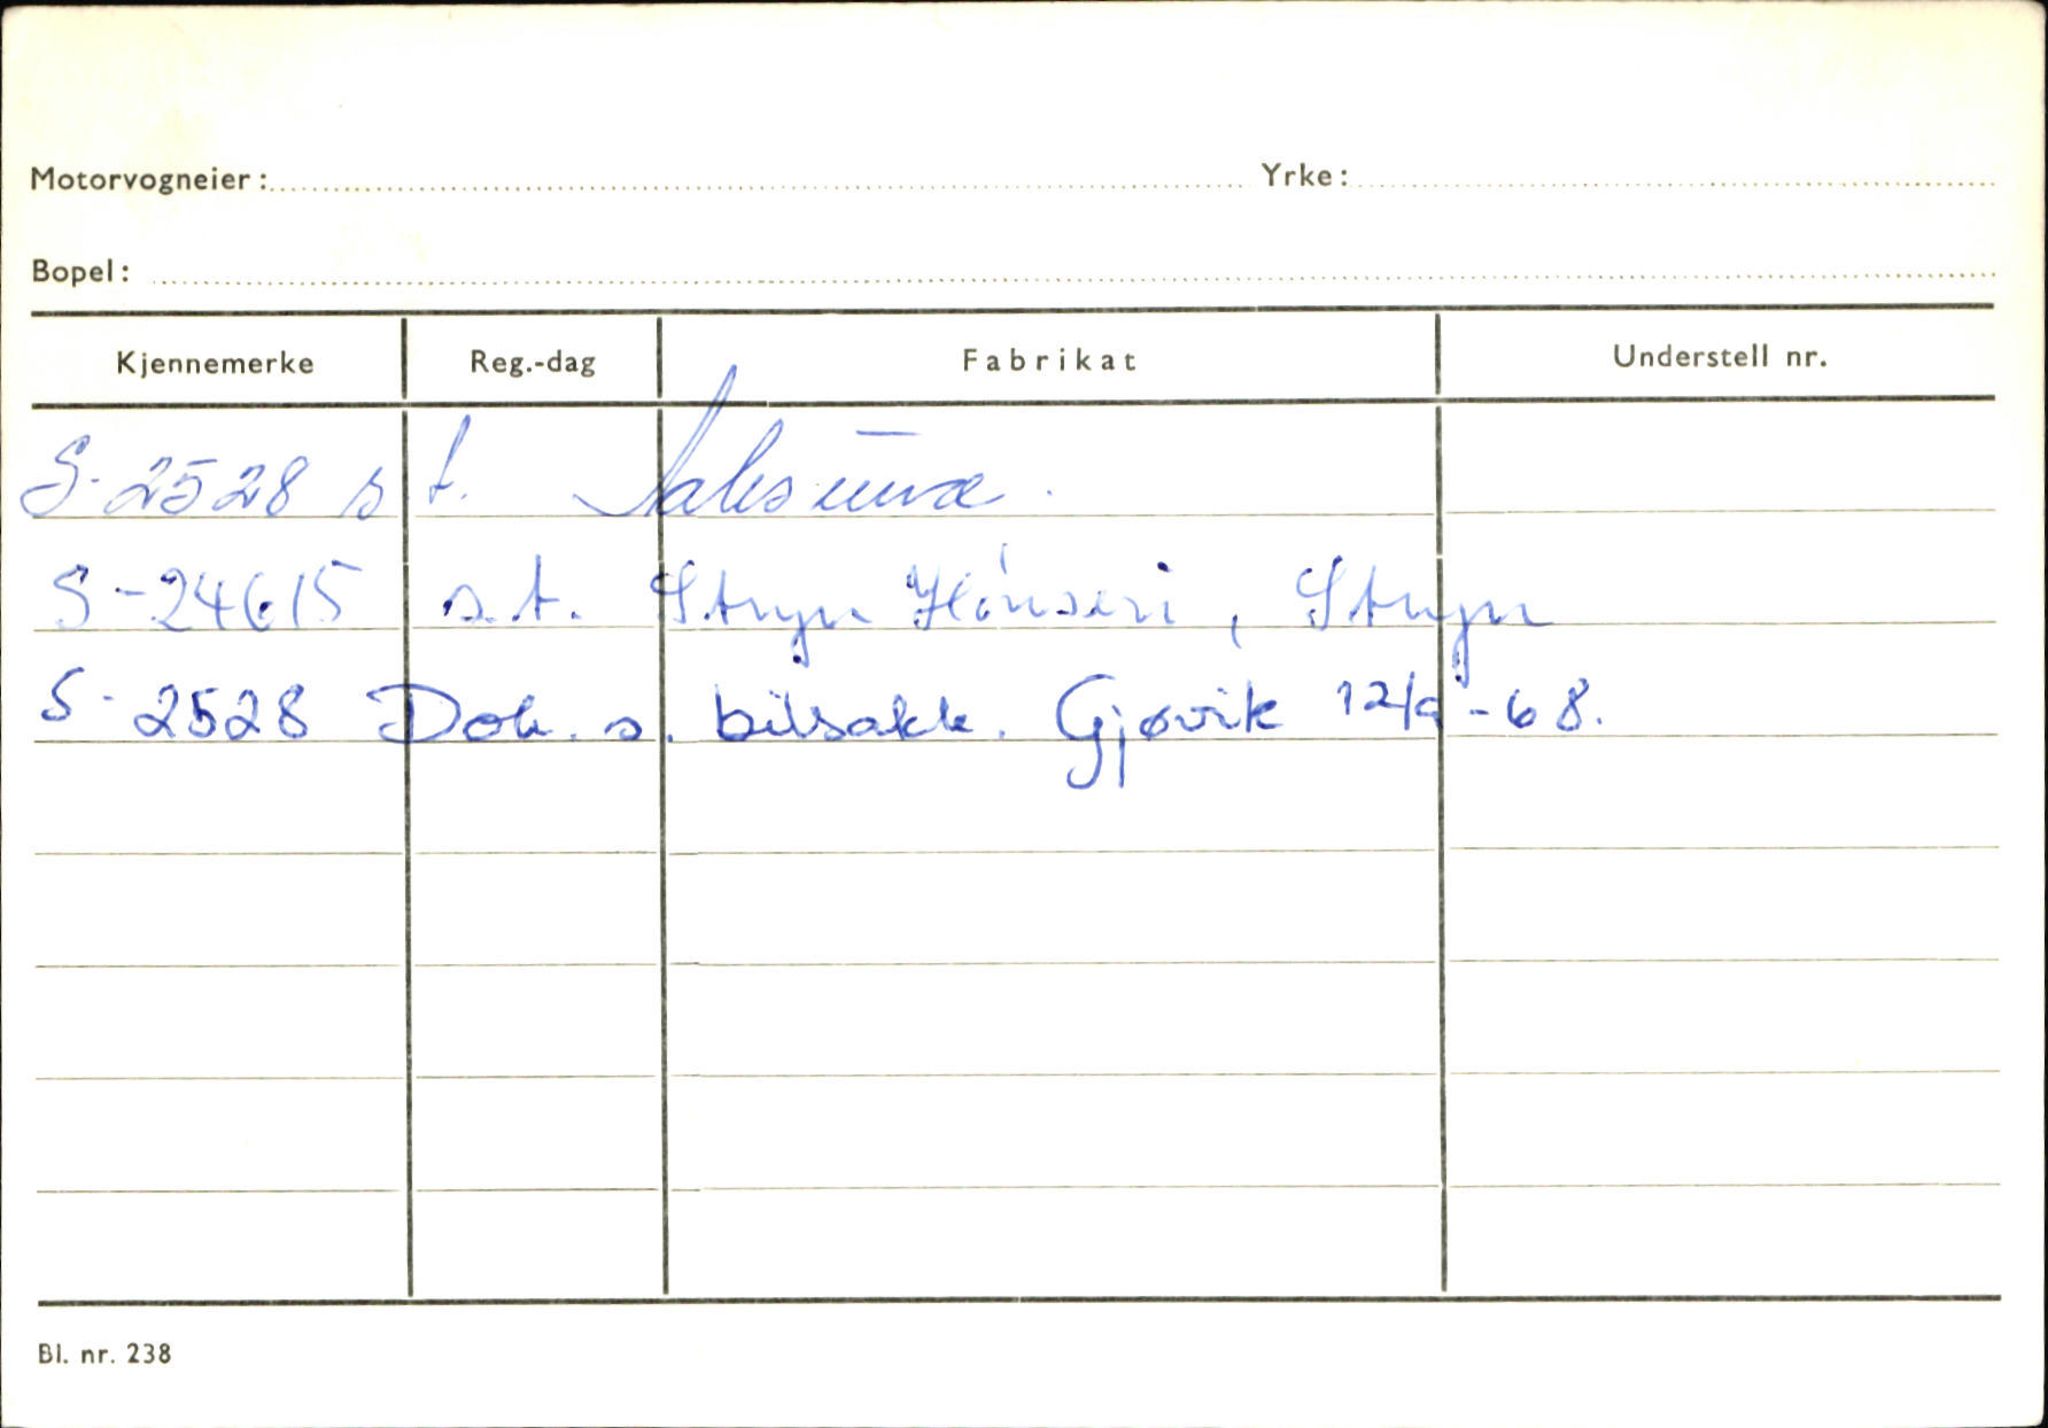 Motorvogneier: Yrke:
Bopel:
Kjennemerke Reg.-dag Fabrikat Understell nr.
S-2528 s t.
S-24615 s.t. Stryn Hönseri, Stryn
S-2528 Dok. s. bilsakk. Gjøvik 12/9-68.
Bl. nr. 238